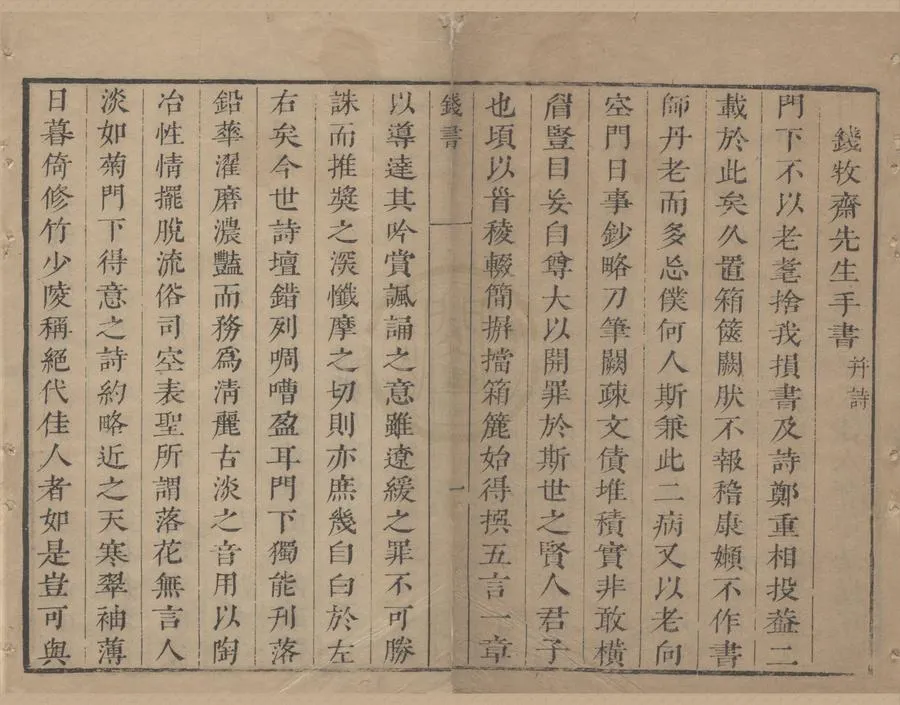 錢牧齋先生手書 幷詩
門下不以老耄捨我損書及詩鄭重相投葢二
載於此矣久置箱篋闕肰不報嵇康嬾不作書
師丹老而多忘僕何人斯兼此二病又以老向
空門日事鈔略刀筆闕疎文債堆積實非敢橫
眉豎目妄自尊大以開罪於斯世之賢人君子
也頃以筲稜輟簡摒擋箱簏始得撰五言一章
錢書 一
以導達其吟賞諷誦之意雖遼緩之罪不可勝
誅而推獎之深懺摩之切則亦庶幾自白於左
右矣今世詩壇錯列啁嘈盈耳門下獨能刋落
鉛華濯磨濃豔而務爲淸麗古淡之音用以陶
冶性情擺脫流俗司空表聖所謂落花無言人
淡如菊門下得意之詩約略近之天寒翠袖薄
日暮倚修竹少陵稱絕代佳人者如是豈可與